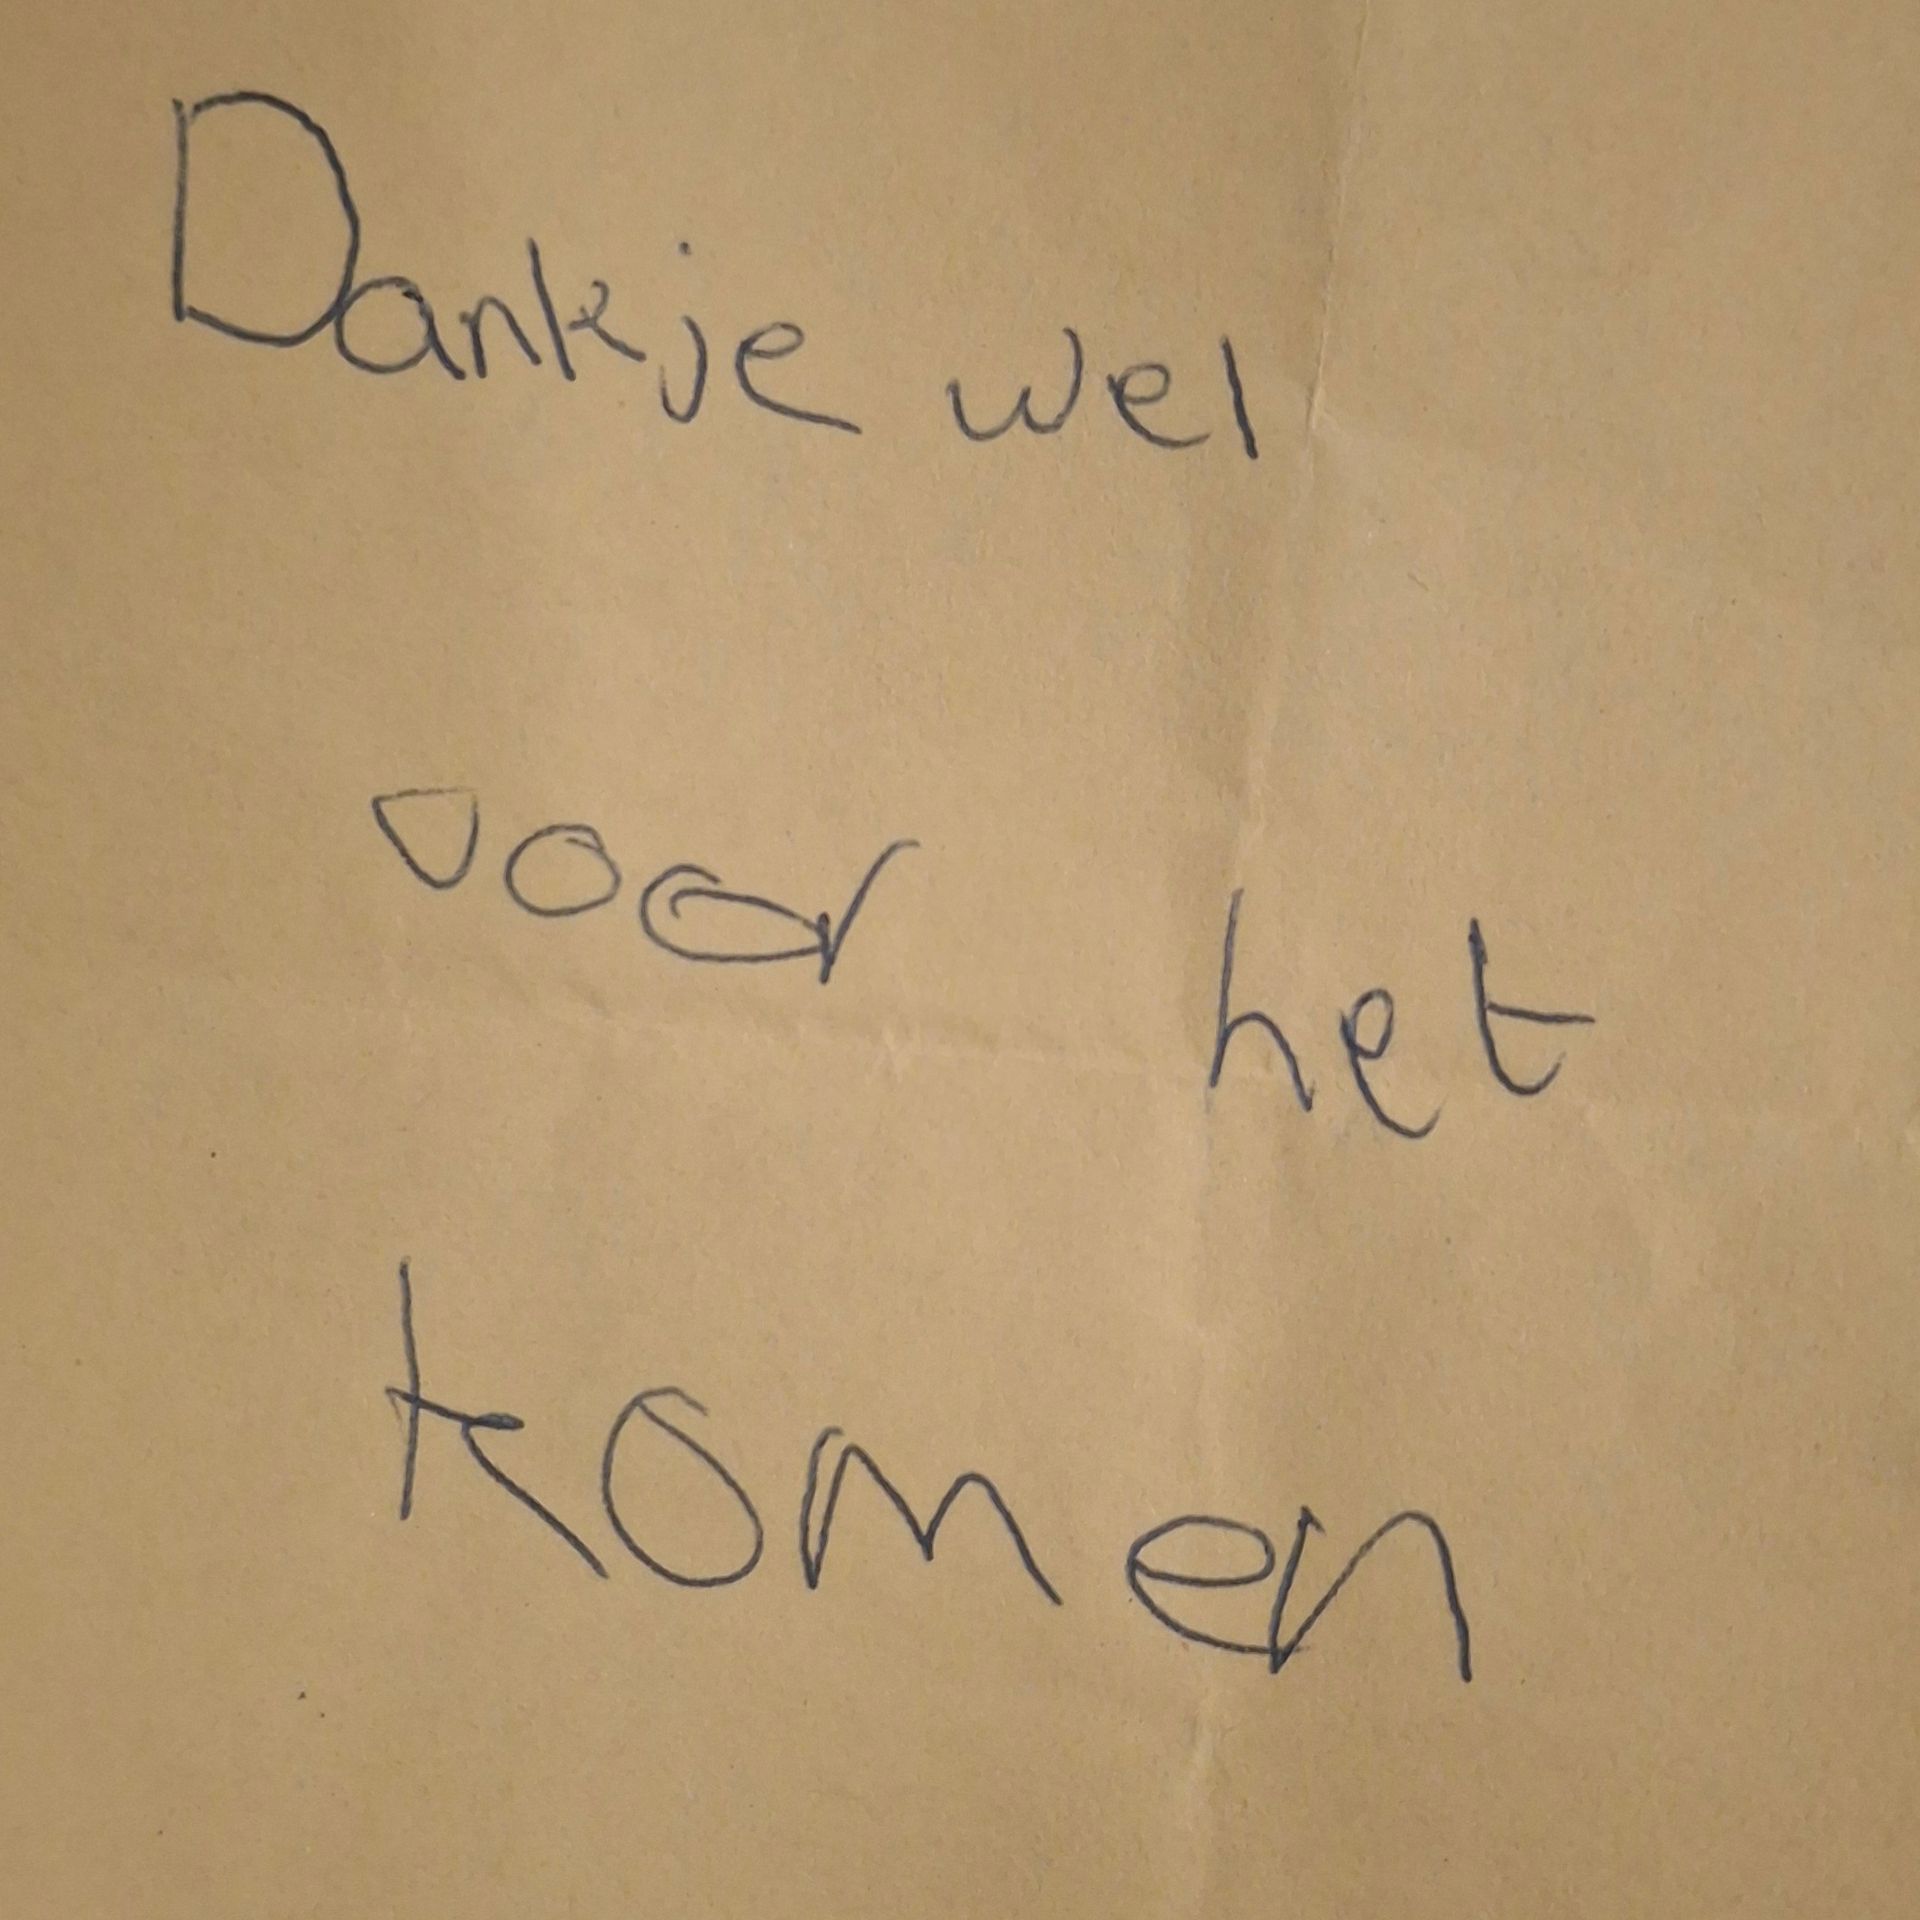 Dankje wel
voor het
komen